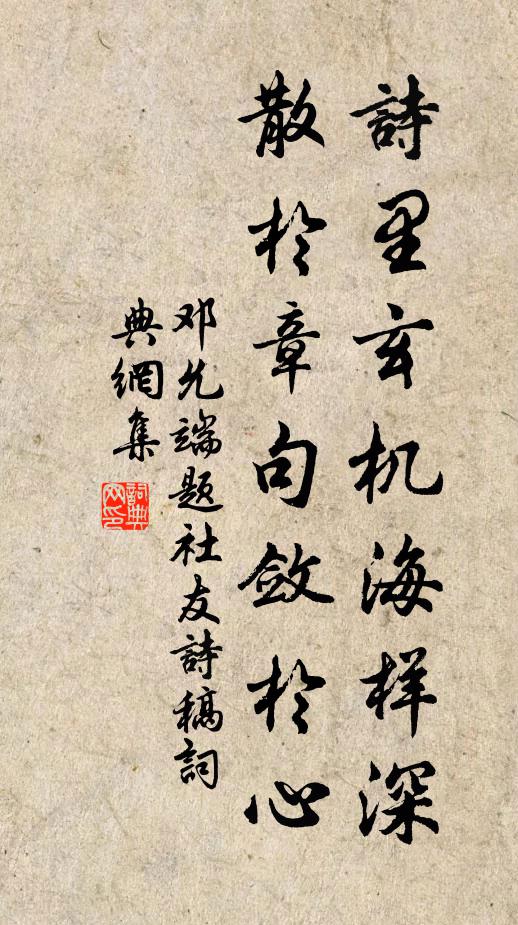 詩里玄机海样深
散於章句敛於心
邓允端题社友詩稿詞
典網集
詞典
网印